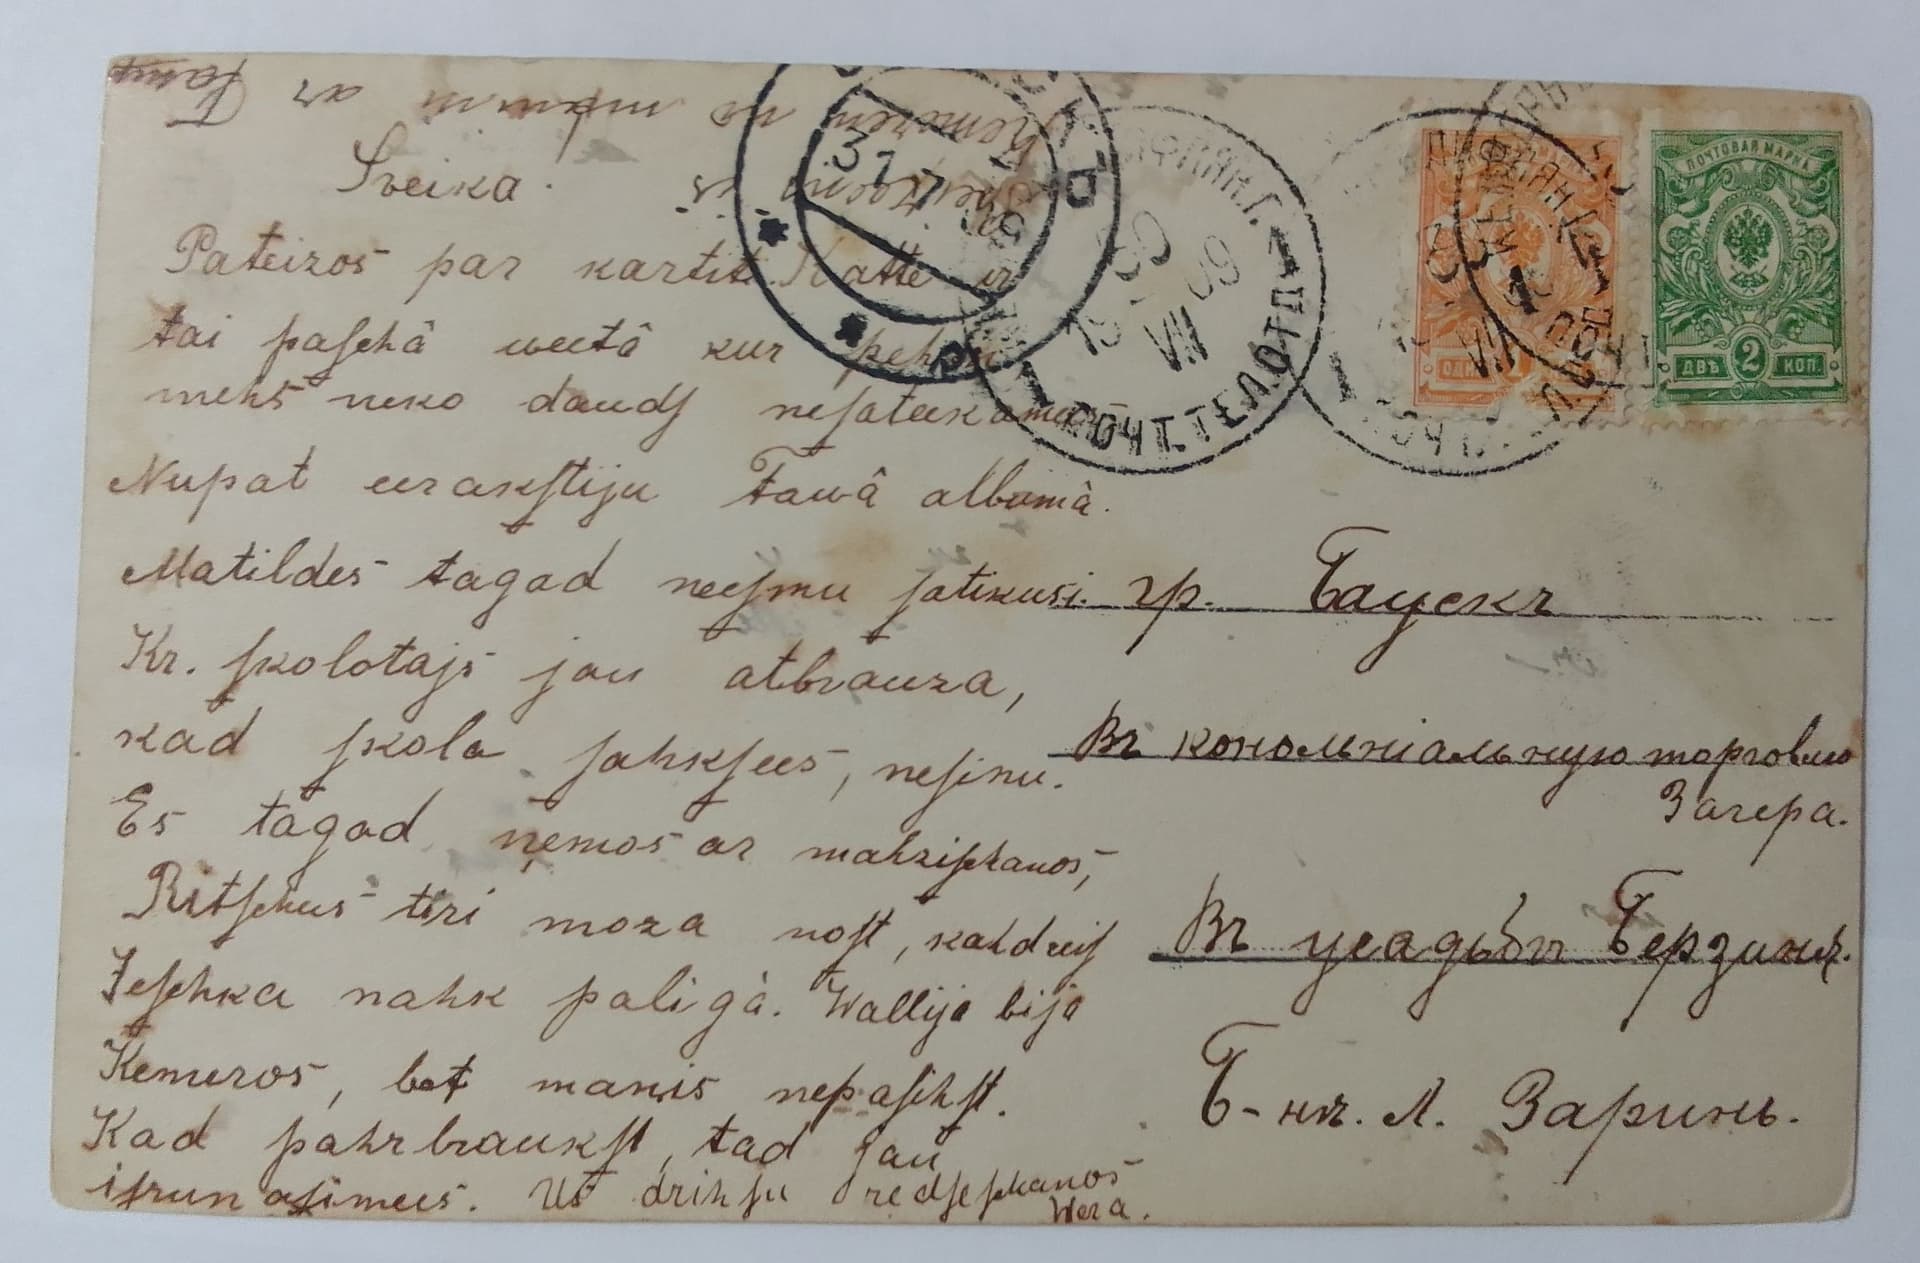 Sveika.
Pateizos par kartiti. Katte ir
tai paschâ weetâ kur pehrn
mehs neko daudz nesateekamees
Nupat eerakstiju Tawâ albumâ.
Matildes tagad neesmu satikusi.
Kr. skolotajs jau atbrauza,
kad skola sahksees, nesinu.
Es tagad ņemos ar mahzischanos,
Ritschus tiri moza nost, kahdreis
Jeschka nahk paligâ. Wallija bija
Kemeros, bet manis nepasihst.
Kad pahrbrauksi, tad jau
isrunasimees. Us drihsu redseschanos
Wera.
ПОЧТОВАЯ МАРКА
ДВѢ 2 КОП.
31 7 09
30 VII 09
1 ПОЧТ. ТЕЛ. ОТД. 1
гр. Баускъ
Въ колоніальную торговлю
Загера.
Въ усадьбѣ Берзинъ.
Б-нъ. Л. Заринь.